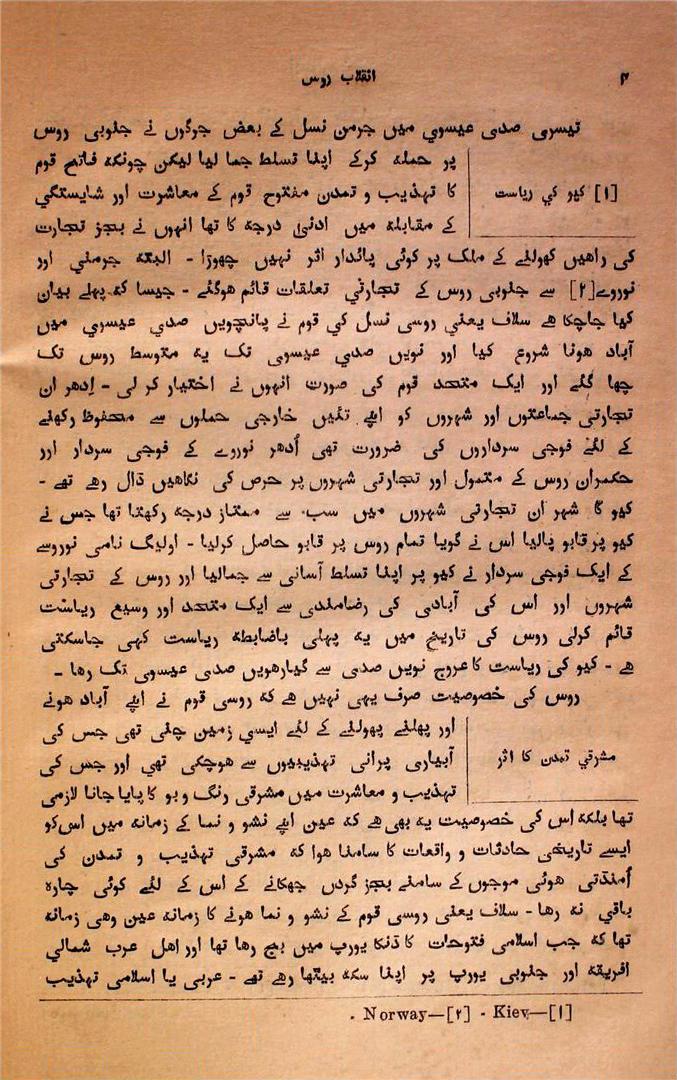 ۴
انقلاب روس
تیسری صدی عیسوي میں جرمن نسل کے بعض جرگوں نے جنوبی روس
پر حملہ کرکے اپنا تسلط جما لیا لیکن چونکہ فاتح قوم
[۱] کیو کي ریاست
کا تہذیب و تمدن مفتوح قوم کے معاشرت اور شایستگي
کے مقابلہ میں ادنیٰ درجہ کا تھا انہوں نے بجز تجارت
کی راھیں کھولنے کے ملک پر کوئی پائدار اثر نہیں چھوڑا - البتہ جرمني اور
نوروے[۲] سے جنوبی روس کے تجارتي تعلقات قائم ھوگئے - جیسا کہ پہلے بیان
کیا جاچکا ھے سلاف یعنی روسی نسل کی قوم نے پانچویں صدي عیسوي میں
آباد ھونا شروع کیا اور نویں صدي عیسوی تک یہ متوسط روس تک
چھا گئے اور ایک متحد قوم کی صورت انہوں نے اختیار کر لی - اِدھر ان
تجارتی جماعتوں اور شہروں کو اپنے تئیں خارجی حملوں سے محفوظ رکھنے
کے لئے فوجی سرداروں کی ضرورت تھی اُدھر نوروے کے فوجی سردار اور
حکمران روس کے متمول اور تجارتی شہروں پر حرص کی نگاھیں ڈال رھے تھے -
کیو کا شہر ان تجارتی شہروں میں سب سے ممتاز درجہ رکھتا تھا جس نے
کیو پر قابو پالیا اس نے گویا تمام روس پر قابو حاصل کرلیا - اولیگ نامی نوروے
کے ایک فوجی سردار نے کیو پر اپنا تسلط آسانی سے جمالیا اور روس کے تجارتی
شہروں اور اس کی آبادی کی رضامندی سے ایک متحد اور وسیع ریاست
قائم کرلی روس کی تاریخ میں یہ پہلی باضابطہ ریاست کہی جاسکتی
ھے - کیو کی ریاست کا عروج نویں صدی سے گیارھویں صدی عیسوی تک رھا -
روس کی خصوصیت صرف یہی نہیں ھے کہ روسی قوم نے اپنے آباد ھونے
اور پھلنے پھولنے کے لئے ایسي زمین چنی تھی جس کی
مشرقي تمدن کا اثر
آبیاری پرانی تہذیبیوں سے ھوچکی تھی اور جس کی
تہذیب و معاشرت میں مشرقی رنگ و بو کا پایا جانا لازمی
تھا بلکہ اس کی خصوصیت یہ بھی ھے کہ عین اپنے نشو و نما کے زمانہ میں اس کو
ایسے تاریخی حادثات و واقعات کا سامنا ھوا کہ مشرقی تہذیب و تمدن کی
اُمنڈتی ھوئی موجوں کے سامنے بجز گردن جھکانے کے اس کے لئے کوئی چارہ
باقي نہ رھا - سلاف یعنی روسی قوم کے نشو و نما ھونے کا زمانہ عین وھی زمانہ
تھا کہ جب اسلامی فتوحات کا ڈنکا یورپ میں بج رھا تھا اور اھل عرب شمالي
افریقہ اور جنوبي یورپ پر اپنا سکہ بیٹھا رھے تھے - عربی یا اسلامی تہذیب
[۱]—Kiev - [۲]—Norway .